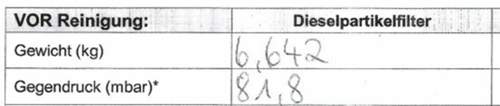 VOR Reinigung: Dieselpartikelfilter
Gewicht (kg) 6,642
Gegendruck (mbar)* 81,8